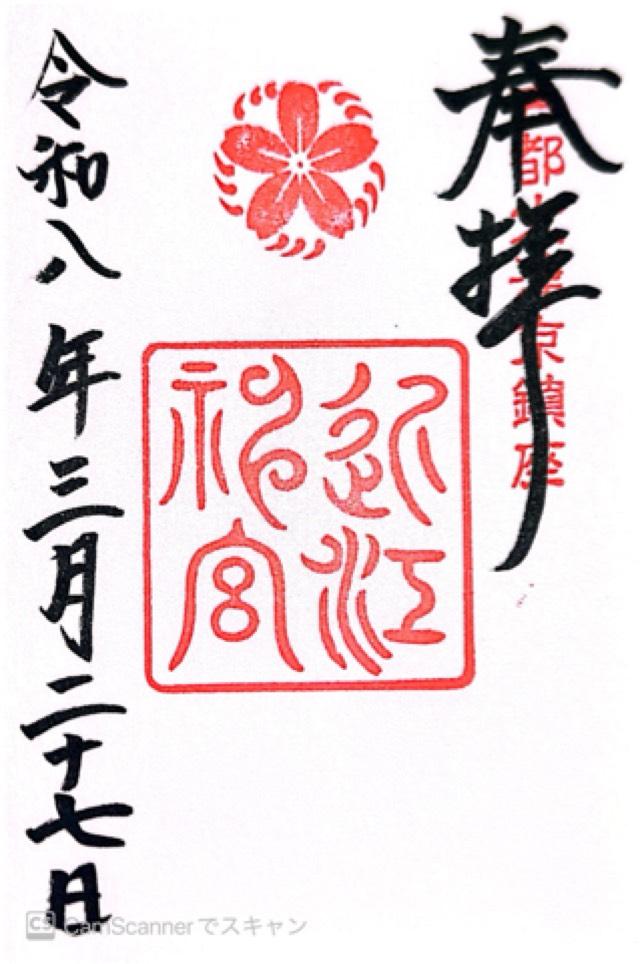 奉拝
都
京鎮座
近江
神宮
令和八年三月二十七日
CS CamScannerでスキャン